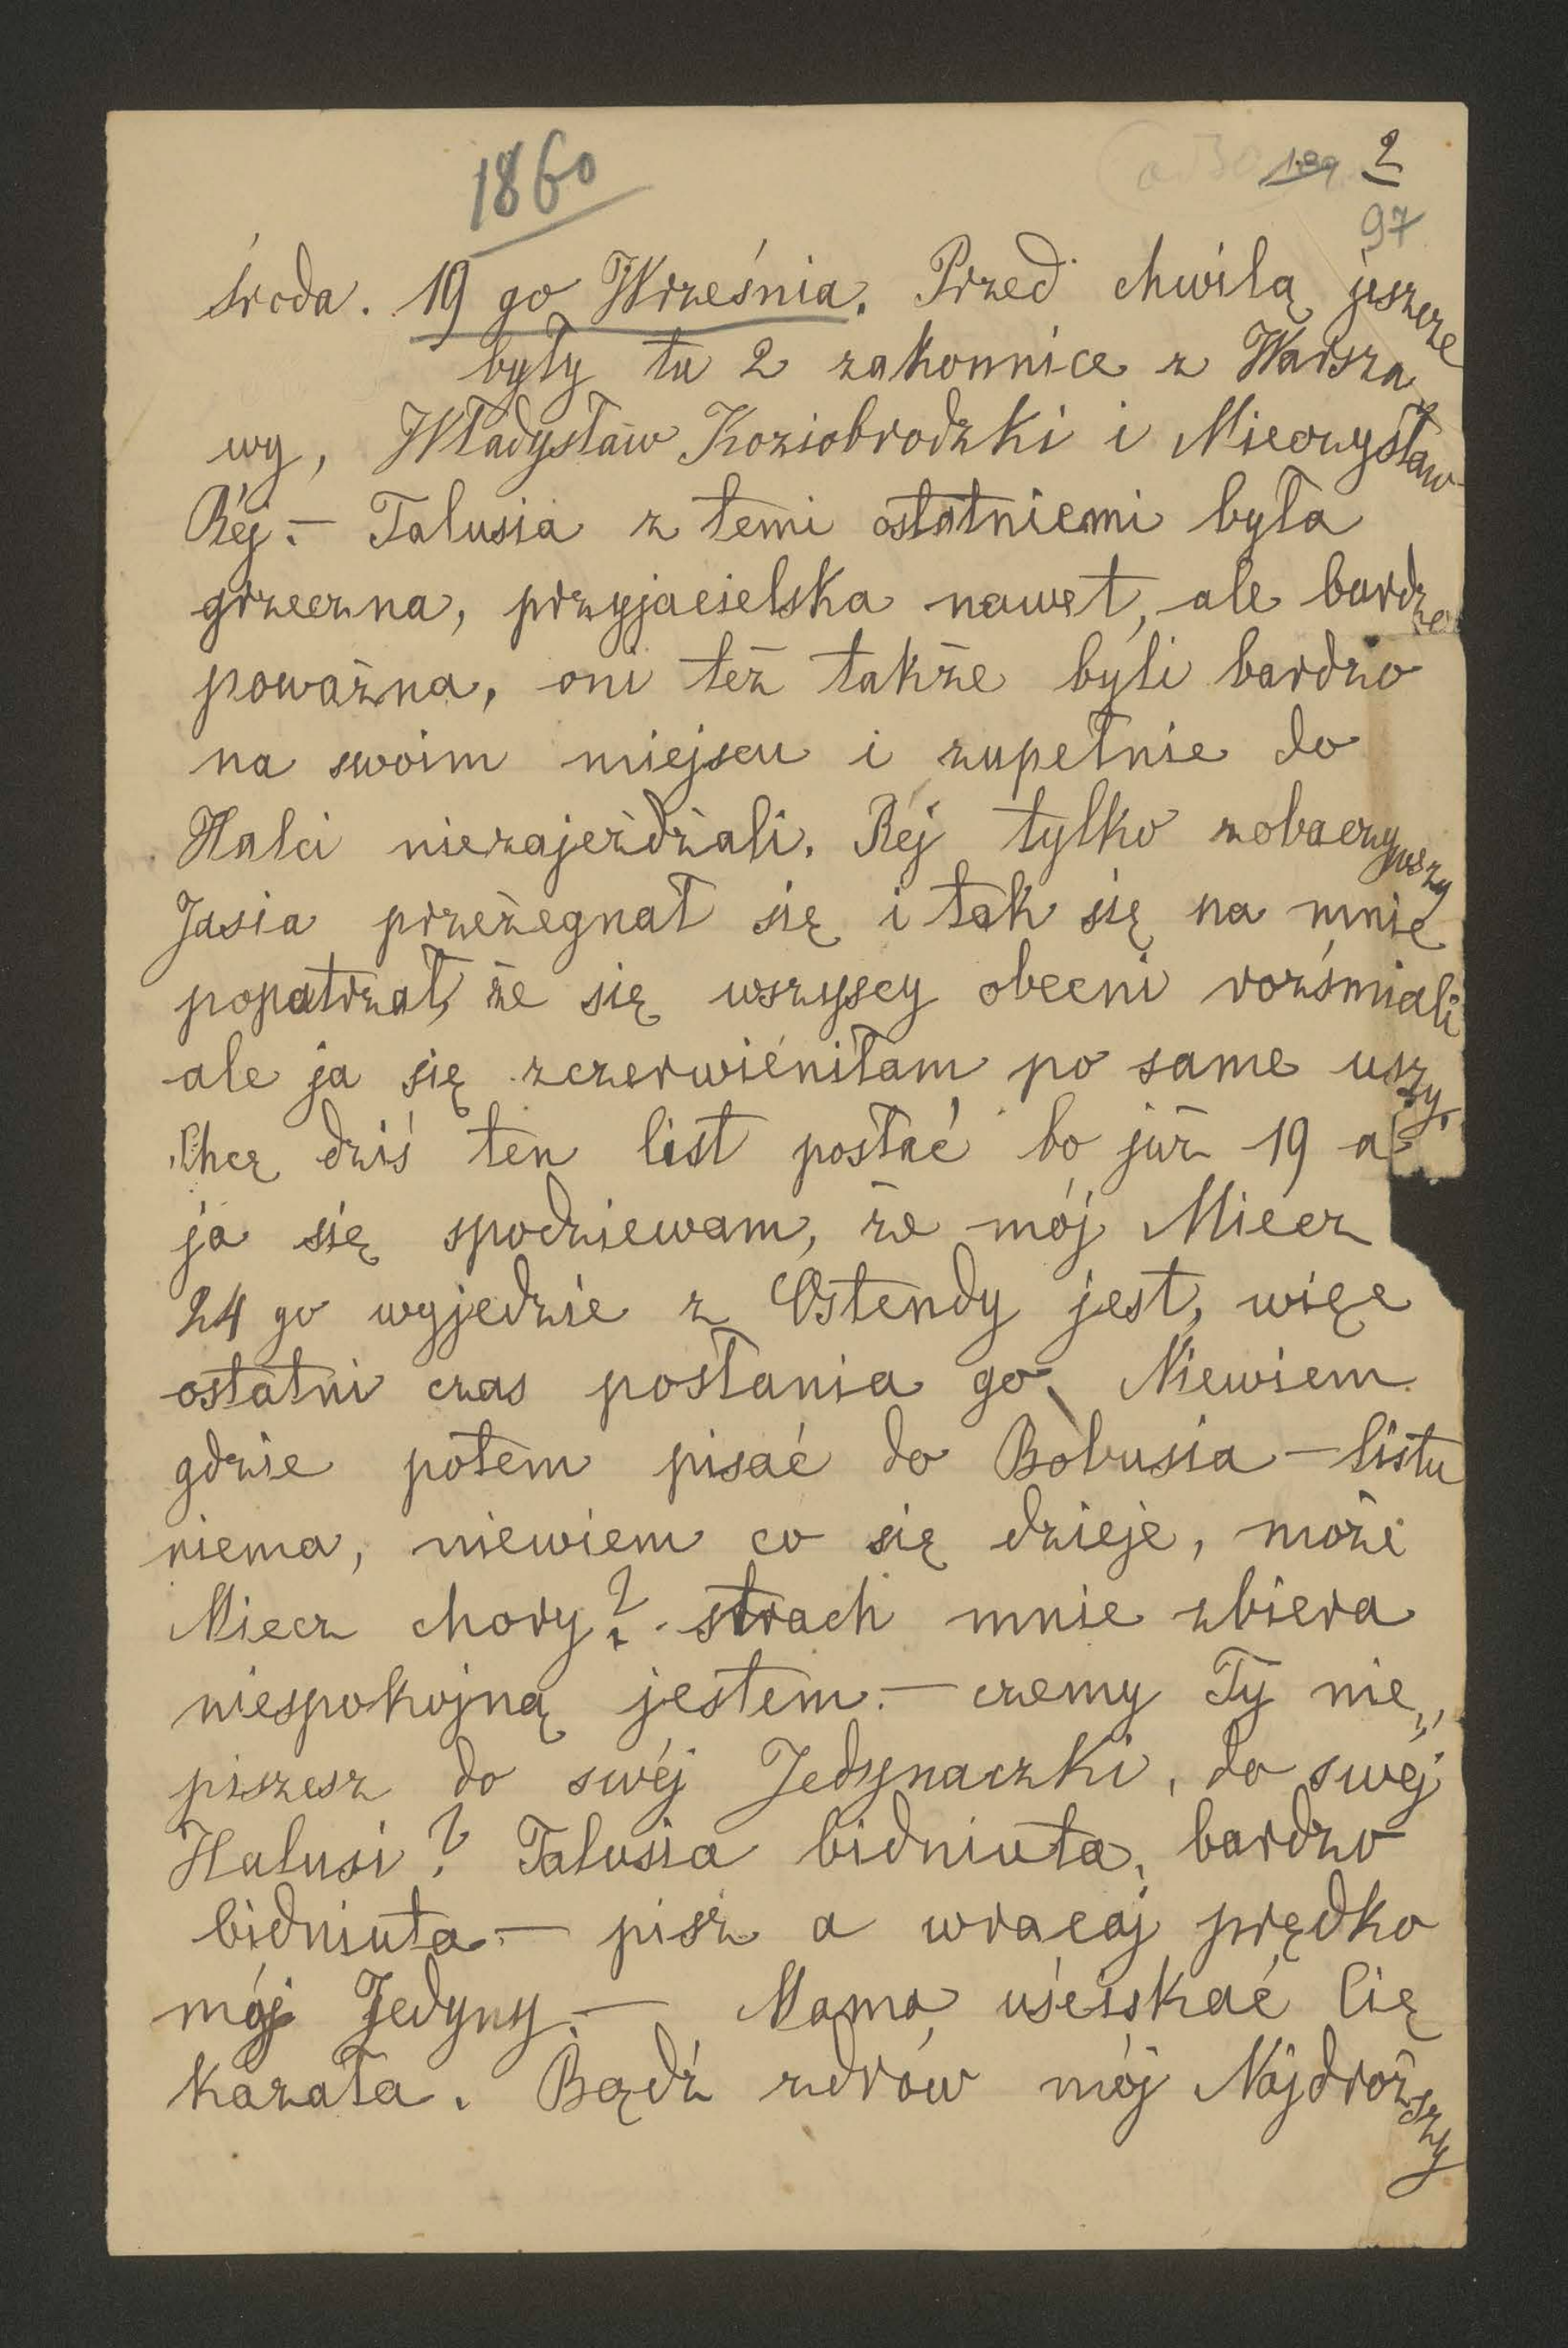 1860
2
97
środa. 19 go Września. Przed chwilą jeszcze
były tu 2 zakonnice z Warsza
wy, Władysław Koziobrodzki i Mieczysław
Réj. — Talusia z temi ostatniemi była
grzeczna, przyjacielska nawet, ale bardzo
poważna, oni też także byli bardzo
na swoim miejscu i zupełnie do
Halci niezajeżdżali. Réj tylko zobaczywszy
Jasia przeżegnał się i tak się na mnie
popatrzał, że się wszyscy obecni rozśmiali
ale ja się zczerwiéniłam po same uszy.
Chcę dziś ten list posłać bo już 19 a
ja się spodziewam, że mój Miecz
24 go wyjedzie z Ostendy jest, więc
ostatni czas posłania go. Niewiem
gdzie potem pisać do Bobusia — listu
niema, niewiem co się dzieje, może
Miecz chory? strach mnie zbiera
niespokojną jestem. — czemy Ty nie„
piszesz do swéj Jedynaczki, do swéj
Halusi? Talusia bidniuta, bardzo
bidniuta — pisz a wracaj prędko
mój Jedyny. — Mama uściskać Cię
kazała. Bądź zdrów mój Najdroższy